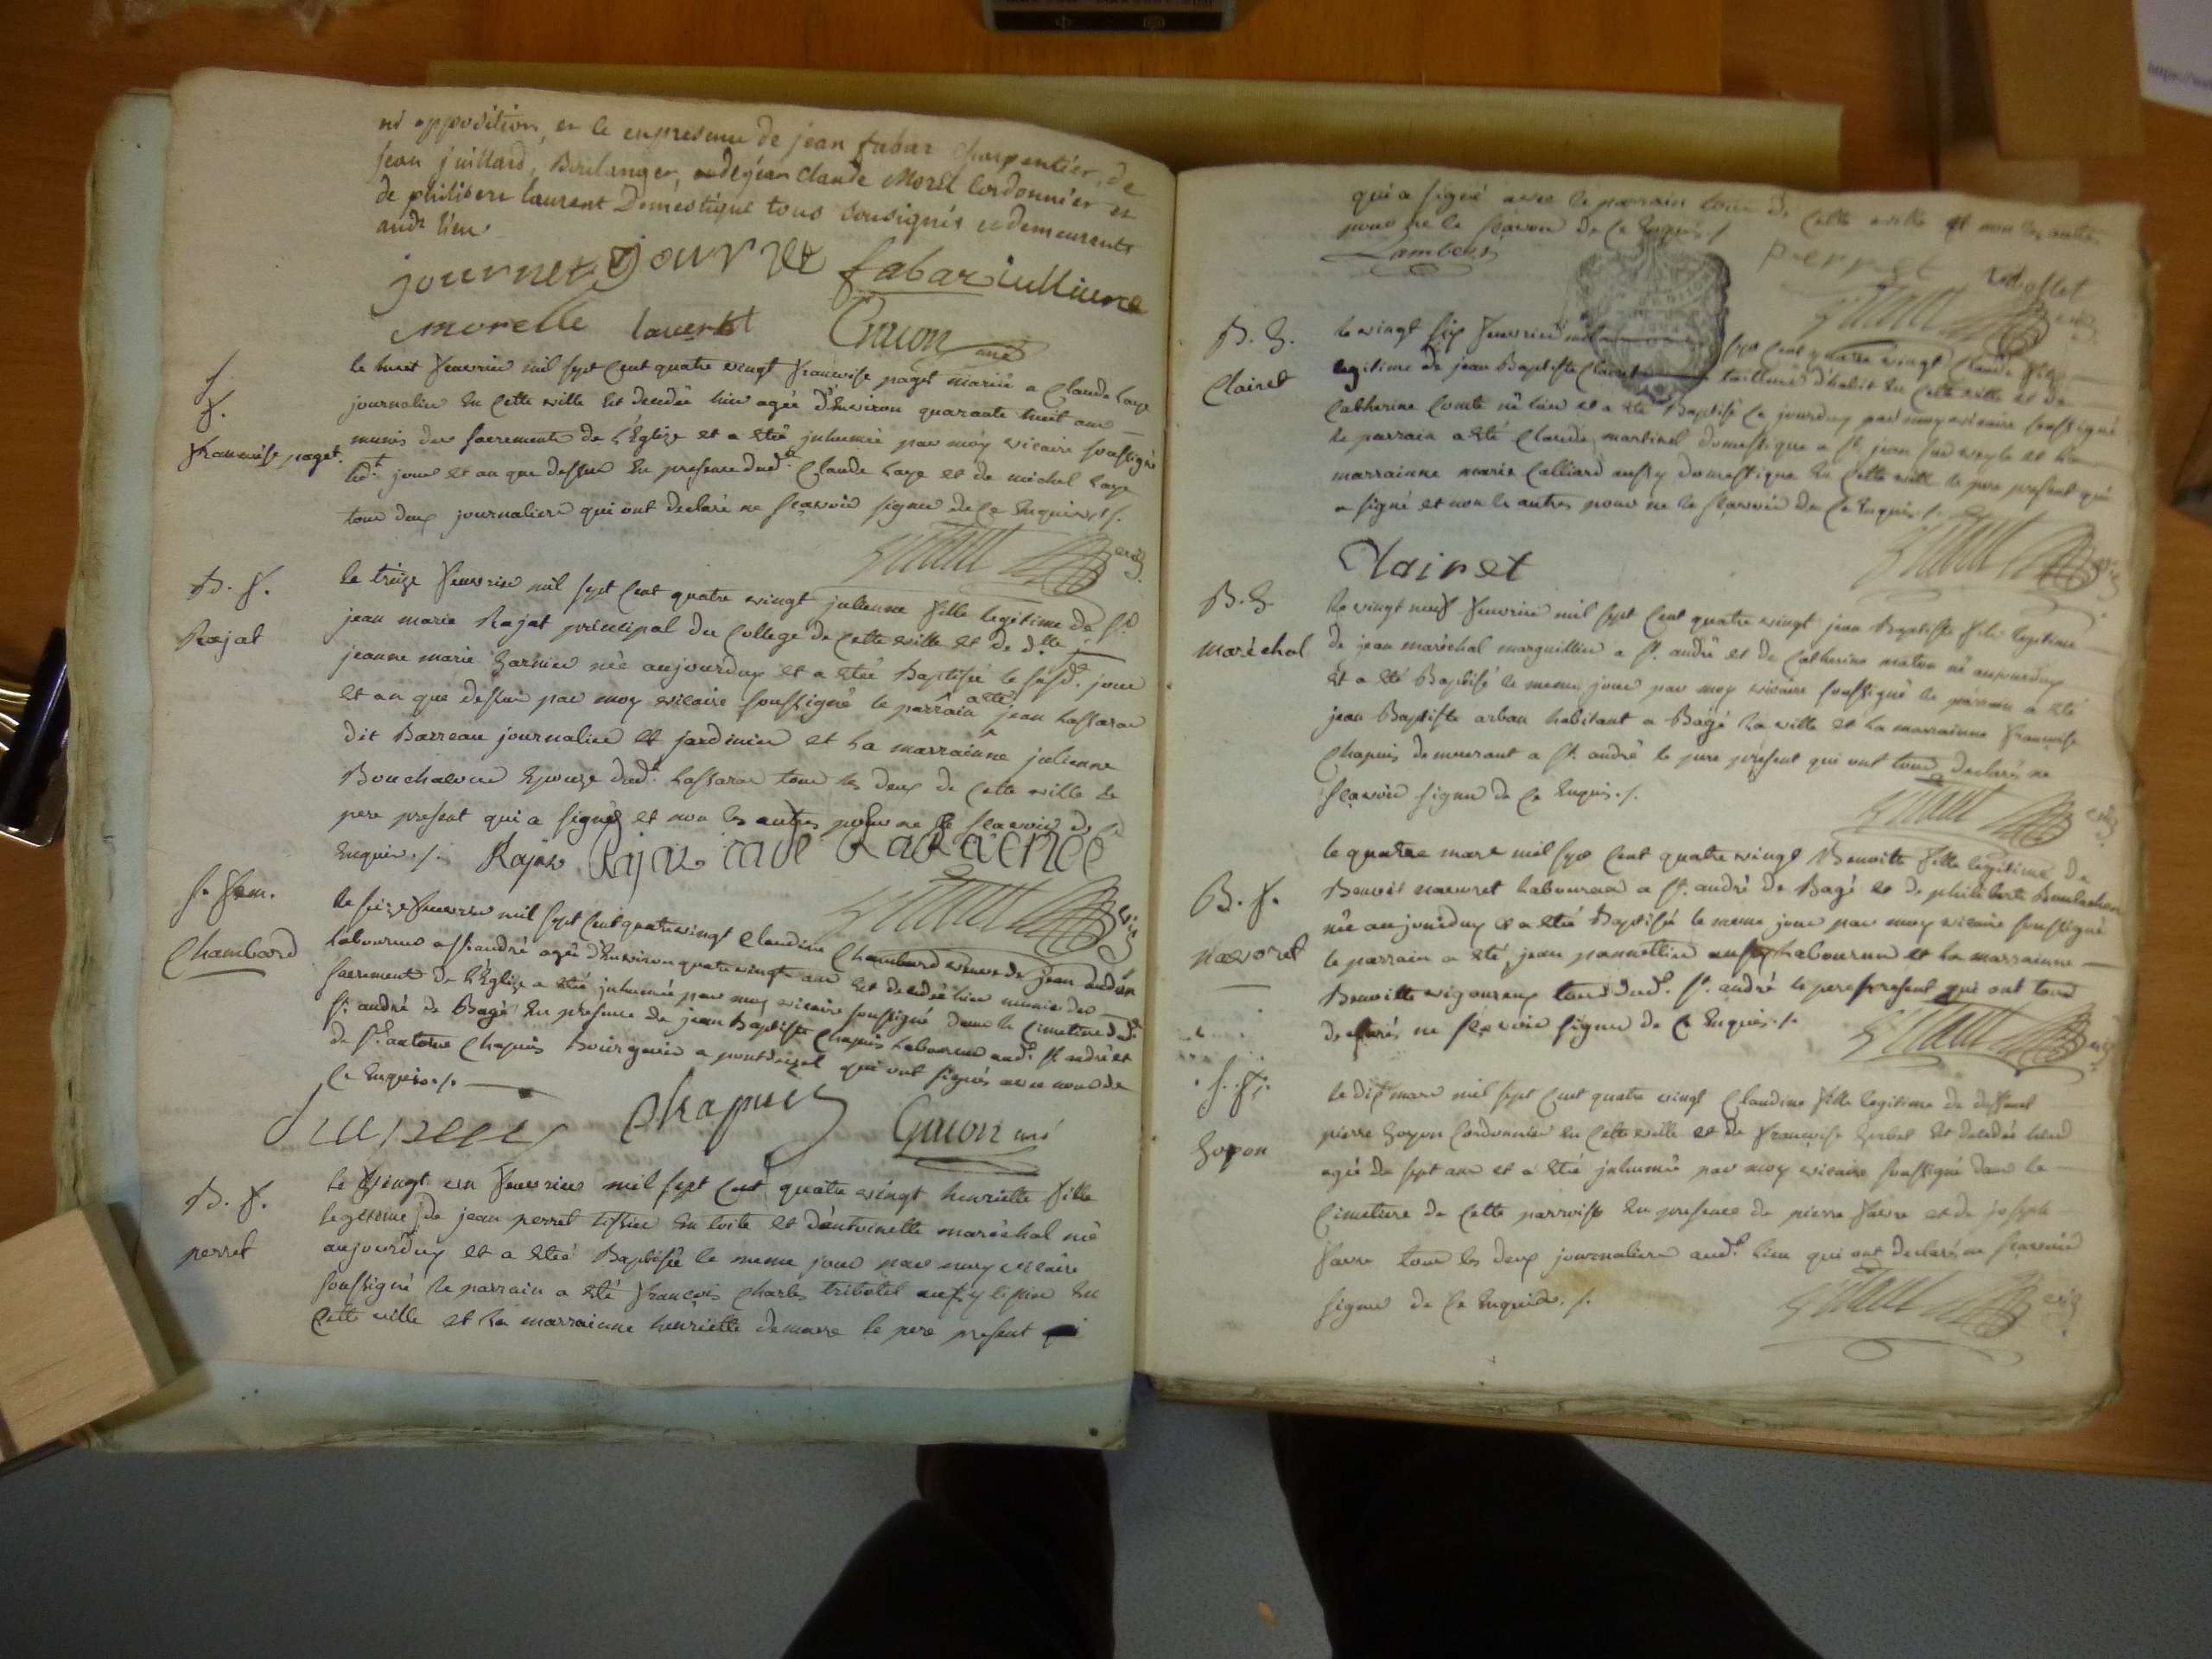 ni opposition, et le en presence de jean fabar charpentier, de
jean juillard, Boulanger, de jean Claude Morel Cordonnier et
de philibert laurent Domestique tous soussignés et demeurants
aud. lieu
journet journet fabar
morelle laurent Guion curé
f.
f.
françoise paget.
le huit fevrier mil sept Cent quatre vingt françoise paget mariée a Claude Laye
journalier En Cette ville Est decedée hier agée d'Environ quarante huit ans
munis des sacrements de l'Eglize et a Eté inhumée par moy vicaire soussigné
led.t jour et an que dessus En presence dud.t Claude Laye et de michel Laye
tous deux journaliers qui ont declaré ne sçavoir signer de Ce Enquis ./.
B. f.
Rajat
le treize fevrier mil sept Cent quatre vingt julienne fille legitime de S.r
jean marie Rajat principal du College de Cette ville et de d.lle
jeanne marie garnier née aujourduy et a Eté Baptisée le susd.t jour
et an que dessus par moy vicaire soussigné le parrain a eté jean Lassarar
dit Barreau journalier et jardinier et la marrainne julienne
Epouze dud.t Lassarar tous les deux de Cette ville le
pere present qui a signé et non les autres pour ne le sçavoir de Ce
Enquis ./. Rajat Rajat
s. fem.
Chambard
le seize fevrier mil sept Cent quatre vingt Claudine Chambard veuve de jean
laboureur a St. andré agée d'Environ quatre vingts ans Est decedée hier munie des
sacrements de l'Eglize a Eté inhumée par moy vicaire soussigné dans le Cimetiere dud.
St. andré de Bagé En presence de jean Baptiste Chapuis Laboureur aud. St. andré et
de Sr. antoine Chapuis Bourgeois a pontdeveyle qui ont signés avec nous de
Ce Enquis ./.
Chapuis Guion curé
B. f.
perret
le vingt un fevrier mil sept Cent quatre vingt henriette fille
legitime de jean perret tissier En toile et d'antoinette maréchal née
aujourduy et a Eté Baptisée le meme jour par moy vicaire
soussigné le parrain a Eté françois Charles tribolet aussy tissier En
Cette ville et la marrainne henriette demare le pere present qui
qui a signé avec le parrain tous de Cette ville et non les autres
pour ne le sçavoir de Ce Enquis ./
Lambert perret
B. g.
Clairet
le vingt six fevrier mil sept Cent quatre vingt Claude fils
legitime de jean Baptiste Clairet tailleur d'habit En Cette ville et de
Catherine Comte né hier et a Eté Baptisé Ce jourduy par moy vicaire soussigné
le parrain a Eté Claude martinet domestique a St. jean sur veyle et la
marrainne marie Calliard aussy domestique En Cette ville le pere present qui
a signé et non les autres pour ne le sçavoir de Ce Enquis ./.
Clairet
B. g.
maréchal
le vingt neuf fevrier mil sept Cent quatre vingt jean Baptiste fils legitime
de jean maréchal marguillier a St. andré et de Catherine né aujourduy
Et a Eté Baptisé le meme jour par moy vicaire soussigné le parrain a Eté
jean Baptiste arban habitant a Bagé la ville et la marrainne françoise
Chapuis demeurant a St. andré le pere présent qui ont tous declarés ne
sçavoir signer de Ce Enquis ./.
B. f.
navoret
le quatre mars mil sept Cent quatre vingt Benoitte fille legitime de
Benoit navoret laboureur a St. andré de Bagé et de philiberte
née aujourduy et a Eté Baptisée le meme jour par moy vicaire soussigné
le parrain a Eté jean aussy laboureur et la marrainne
Benoitte vigoureux tous dud. St. andré le pere present qui ont tous
declarés ne sçavoir signer de Ce Enquis ./.
s. f.
goyon
le dix mars mil sept Cent quatre vingt Claudine fille legitime de deffunt
pierre goyon Cordonnier En Cette ville et de françoise Est decedée hier
agée de sept ans et a Eté inhumée par moy vicaire soussigné dans le
Cimetiere de Cette parroisse En presence de pierre favre et de joseph
favre tous les deux journaliers aud.t lieu qui ont declaré ne sçavoir
signer de Ce Enquis ./.